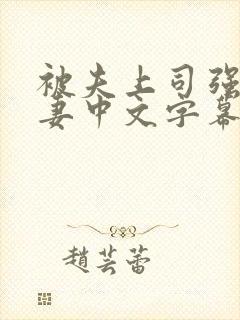 被夫上司强
妻中文字幕
趙芸蕾